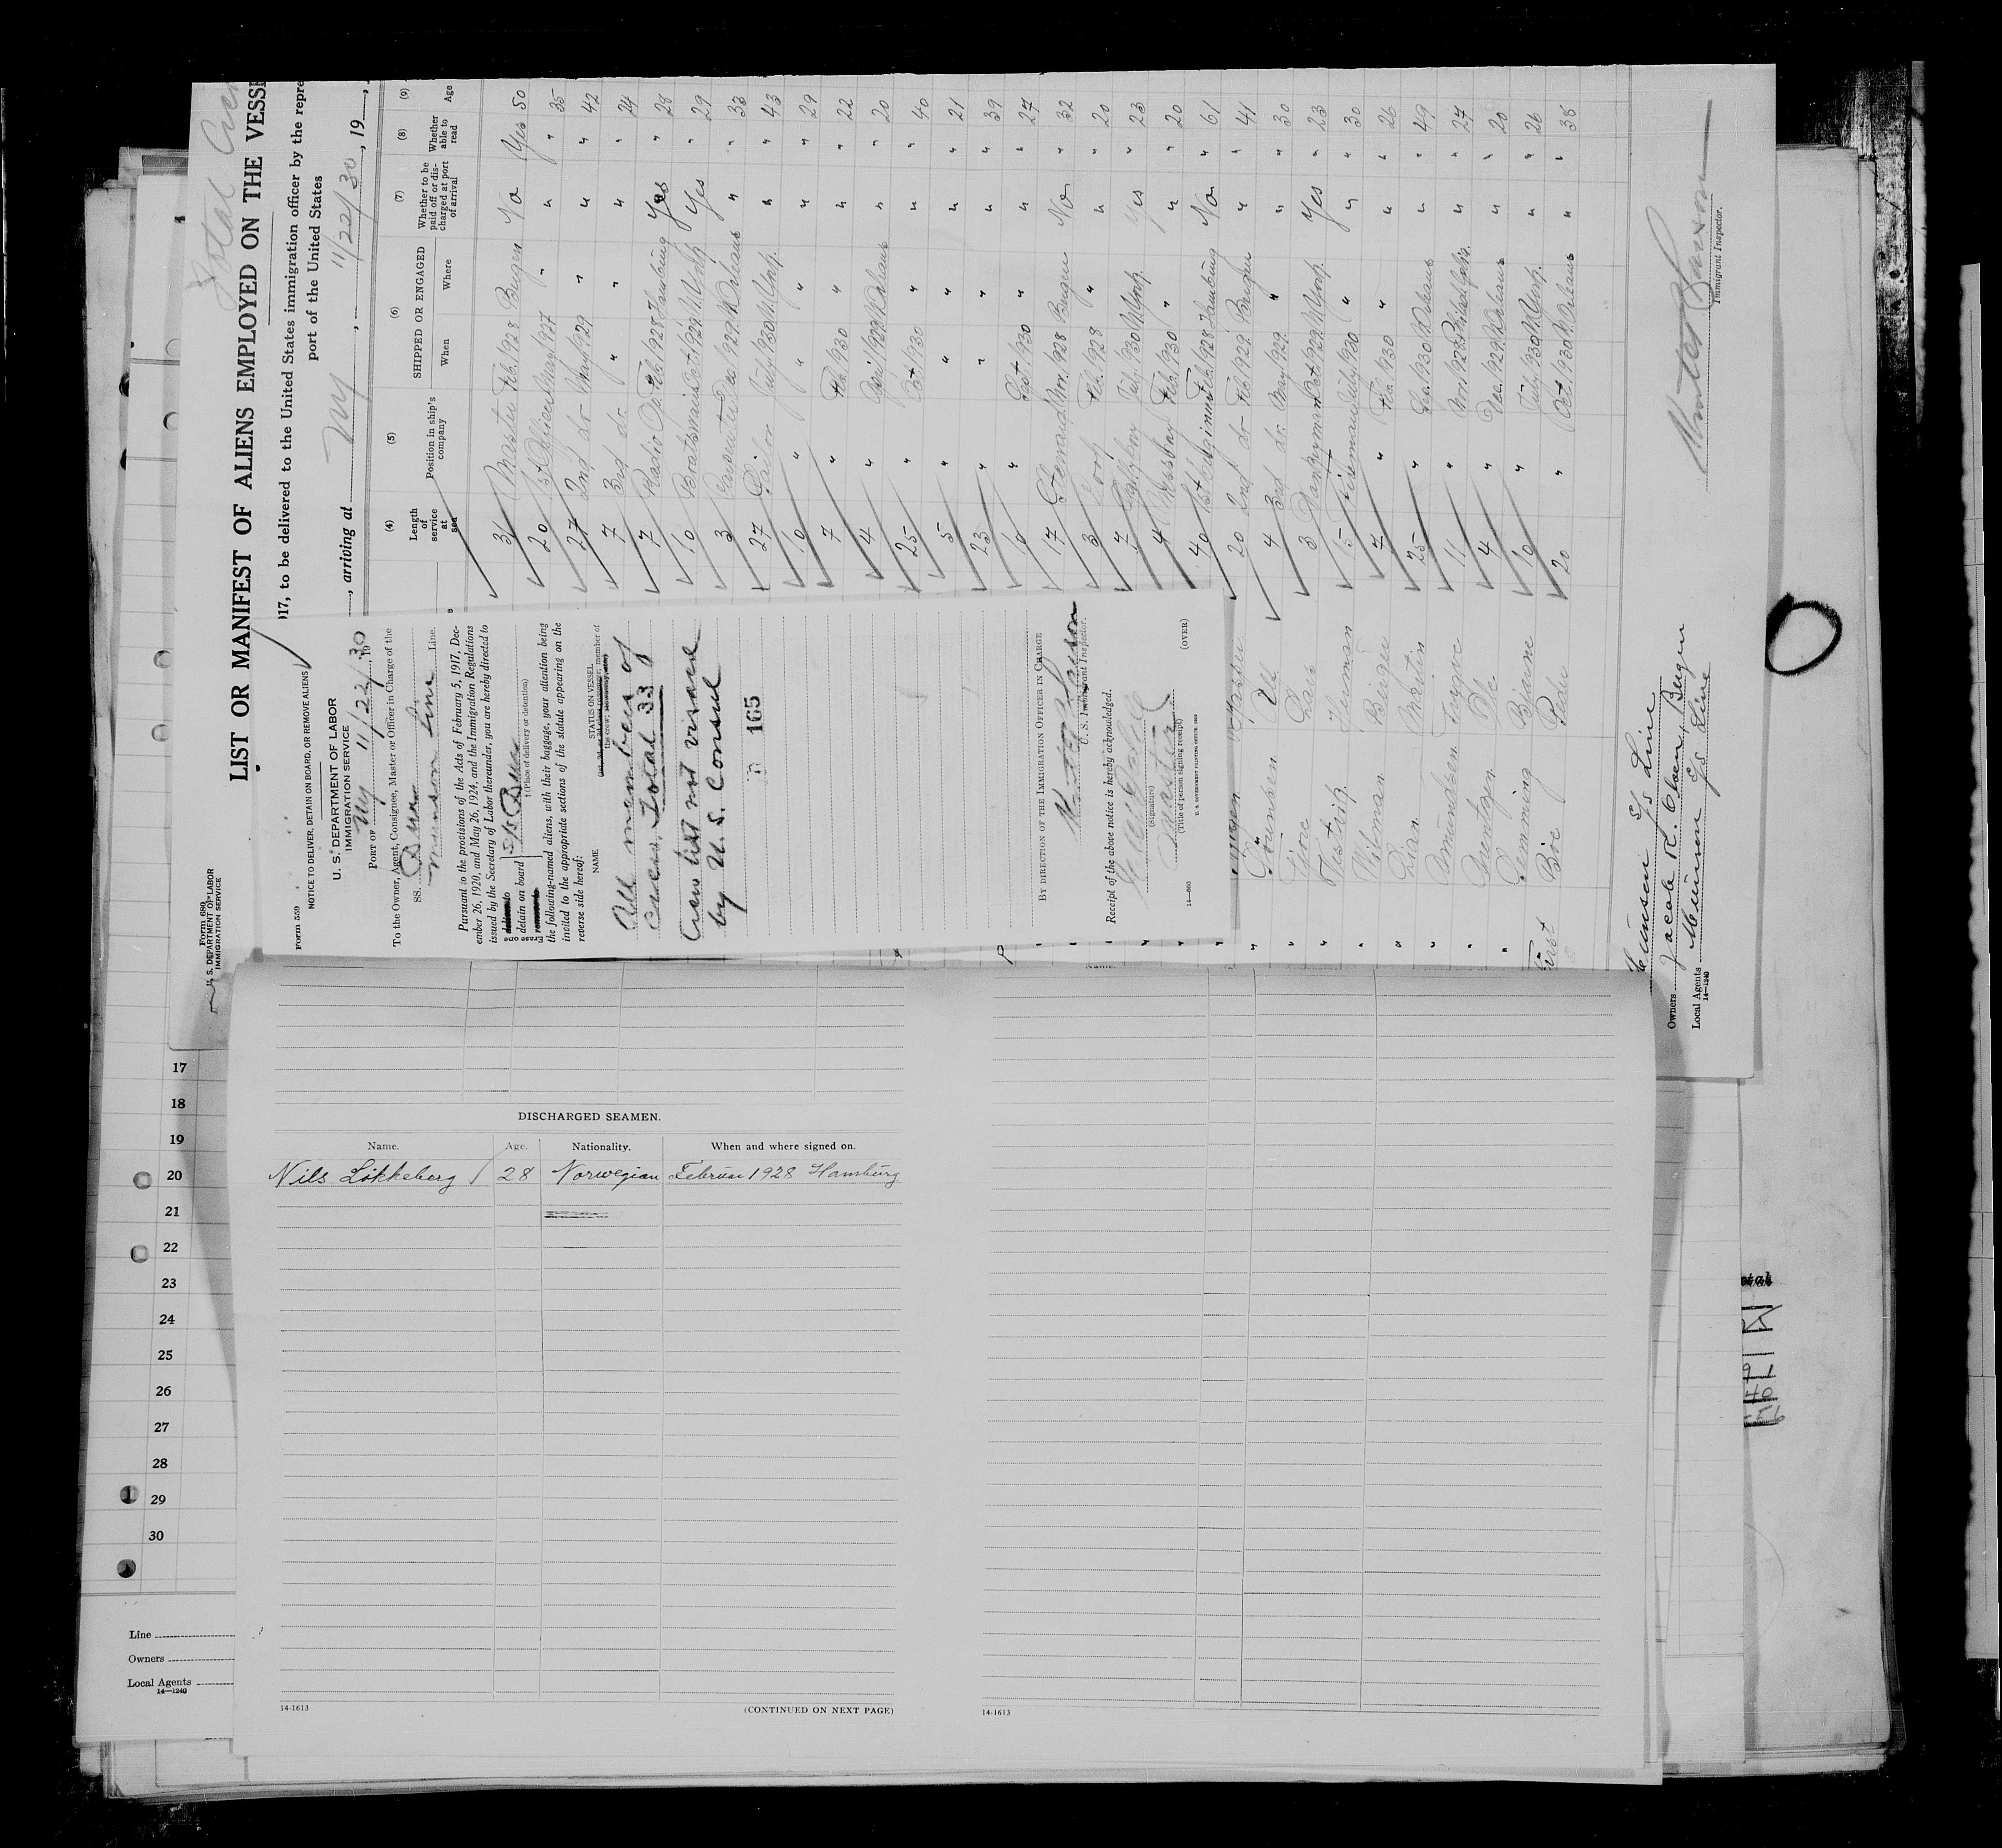 Total Crew
LIST OR MANIFEST OF ALIENS EMPLOYED ON THE VESSE
017, to be delivered to the United States immigration officer by the repre
port of the United States
, arriving at NY, 11/22/30, 19
(4) (5) (6) (7) (8) (9)
Length of service at sea Position in ship's company SHIPPED OR ENGAGED When Where Whether to be paid off or discharged at port of arrival Whether able to read Age
31 Master Feb. 1928 Bergen No Yes 50
20 1st Officer May 1927 " " " 35
27 2nd do May 1929 " " " 42
7 3rd do " " " " 24
7 Radio Op. Feb. 1928 Hamburg Yes " 28
10 Boatswain Oct. 1929 N. York Yes " 29
3 Carpenter Dec. 1929 N. Orleans " " 33
27 Sailor July 1930 N. York " " 43
10 " " " " " 29
7 " Feb. 1930 " " " 22
4 " April 1929 N. Orleans " " 20
25 " Oct. 1930 " " " 40
5 " " " " " 21
23 " " " " " 39
10 " Sept. 1930 " " " 27
17 Steward Nov. 1928 Bergen No " 32
3 Cook Feb. 1928 " " " 20
7 Galleyboy July 1930 N. York Yes " 23
4 Messboy Feb. 1930 " " " 20
40 1st Engineer Feb. 1928 Hamburg No " 61
20 2nd do Feb. 1929 Bergen " " 41
4 3rd do May 1929 " " " 30
3 Donkeyman Oct. 1929 N. York Yes " 23
15 Fireman July 1930 " " " 30
7 " Feb. 1930 " " " 26
25 " Dec. 1930 N. Orleans " " 49
11 " Nov. 1928 Philadelphia " " 27
4 " Dec. 1929 N. Orleans " " 20
10 " July 1930 N. York " " 26
20 " Oct. 1930 N. Orleans " " 38
Hassel
Sörensen Ole
Fjore Lars
Testvik Herman
Wilman Birger
Lian Martin
Amundsen Trygve
Arentzen Ole
Flemming Bjarne
First Böe Peder
Munson S/S Line
Owners Jacob R. Olsen, Bergen
Local Agents Munson S/S Line
14—1240
Immigrant Inspector.
Form 680
U. S. DEPARTMENT OF LABOR
IMMIGRATION SERVICE
Form 559
NOTICE TO DELIVER, DETAIN ON BOARD, OR REMOVE ALIENS
U. S. DEPARTMENT OF LABOR
IMMIGRATION SERVICE
PORT OF NY 11/22/30, 19
To the Owner, Agent, Consignee, Master or Officer in Charge of the
SS.
Munson Line Line.
Pursuant to the provisions of the Acts of February 5, 1917, Dec-
ember 26, 1920, and May 26, 1924, and the Immigration Regulations
issued by the Secretary of Labor thereunder, you are hereby directed to
detain on board
(Place of delivery or detention)
the following-named aliens, with their baggage, your attention being
invited to the appropriate sections of the statute appearing on the
reverse side hereof:
NAME STATUS ON VESSEL
All members of
crew. Total 33
Crew list not visaed
by U. S. Consul
165
BY DIRECTION OF THE IMMIGRATION OFFICER IN CHARGE
U. S. Immigrant Inspector.
Receipt of the above notice is hereby acknowledged.
(Signature)
Master
(Title of person signing receipt)
14—660 U. S. GOVERNMENT PRINTING OFFICE: 1928 (OVER)
17
18
19
20
21
22
23
24
25
26
27
28
29
30
Line
Owners
Local Agents
14—1240
DISCHARGED SEAMEN.
Name. Age. Nationality. When and where signed on.
Nils Lökkeberg 28 Norwegian Februar 1928 Hamburg
14-1613 (CONTINUED ON NEXT PAGE)
14-1613